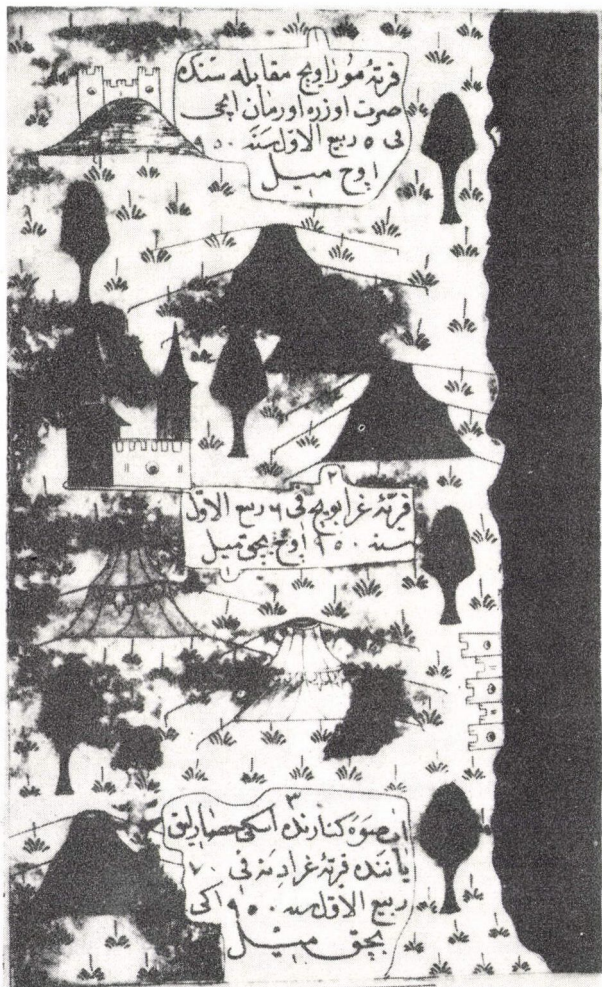 قریهٔ موراویج مقابله سنده
صوت اوزره اورمان ایچی
فی ٥ ربیع الاول سنه ٩٥٠
اوج میل
٢
قریهٔ غرابویج فی ٦ ربیع الاول
سنه ٩٥٠ اوج بچق میل
٣
صوه کنارنده اسکی حصارلیق
یاننده قریهٔ غرادنه فی ٧
ربیع الاول سنه ٩٥٠ ایکی
بچق میل